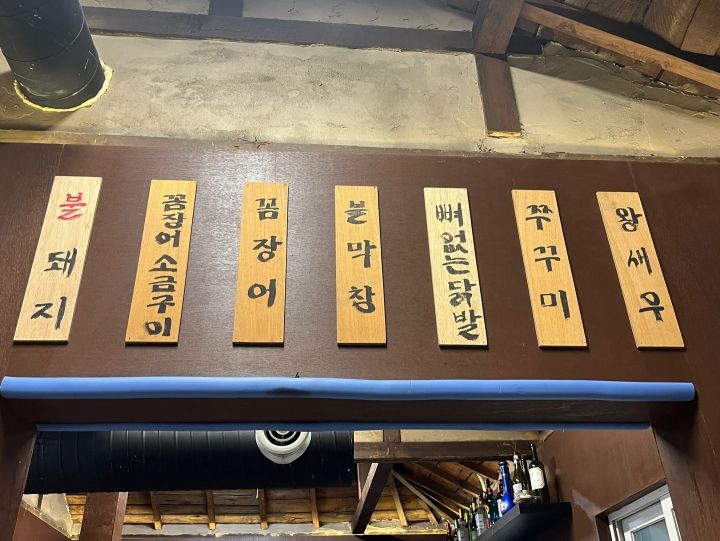 불돼지
꼼장어소금구이
꼼장어
불막창
뼈없는닭발
쭈꾸미
왕새우